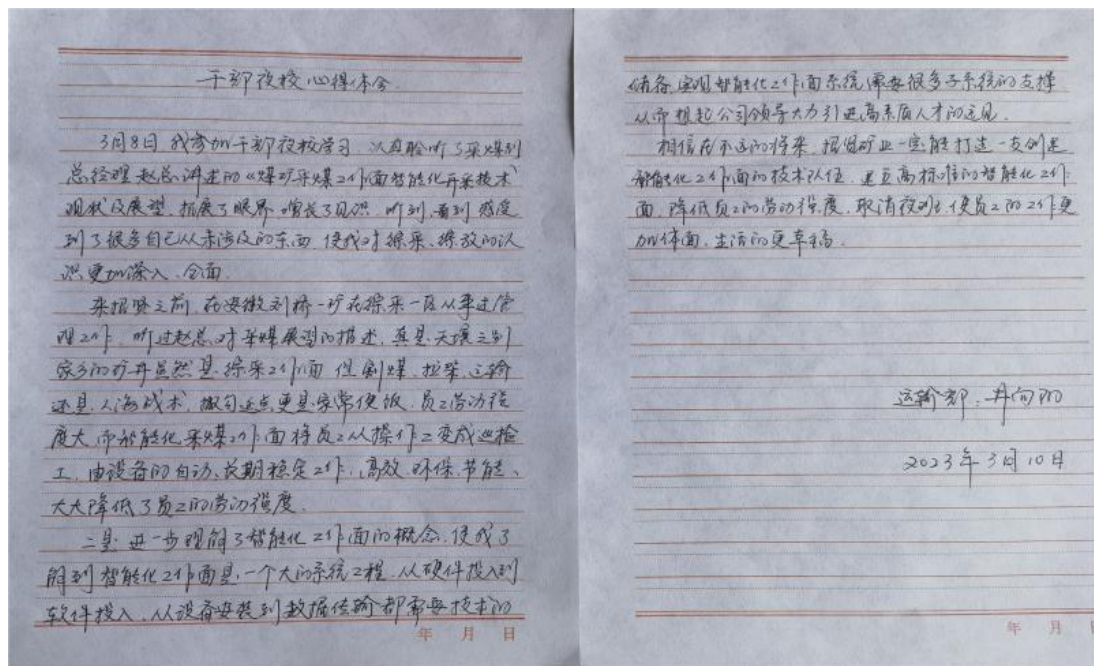 干部夜校心得体会
3月8日我参加干部夜校学习，认真聆听了采煤副
总经理赵总讲述的《煤矿采煤工作面智能化开采技术
现状及展望，拓展了眼界，增长了见识，听到、看到、感受
到了很多自己从未涉及的东西，使我对综采、综放的认
识更加深入、全面。
来招贤之前，在安徽刘桥一矿在综采一区从事过管
理工作，听过赵总对采煤展望的描述，真是天壤之别
家乡的矿井虽然是综采工作面，但割煤、拉架、运输
还是人海战术，拖勾延点更是家常便饭，员工劳动强
度大，而智能化采煤工作面将员工从操作工变成巡检
工，由设备的自动、长期稳定工作，高效、环保、节能、
大大降低了员工的劳动强度。
二是进一步理解了智能化工作面的概念，使我了
解到智能化工作面是一个大的系统工程，从硬件投入到
软件投入，从设备安装到数据传输都需要技术的
年 月 日
储备，实现智能化工作面系统需要很多子系统的支撑
从而想起公司领导大力引进高素质人才的远见。
相信在不远的将来，招贤矿业一定能打造一支创建
智能化工作面的技术队伍，建立高标准的智能化工作
面，降低员工的劳动强度，取消夜班，使员工的工作更
加体面，生活的更幸福。
运输部：井向阳
2023年3月10日
年 月 日